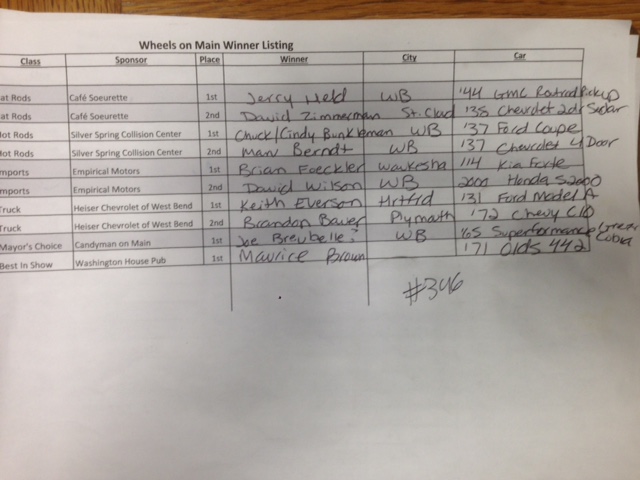 Wheels on Main Winner Listing
Class Sponsor Place Winner City Car
at Rods Café Soeurette 1st Jerry Held WB '44 GMC Ratrod Pickup
at Rods Café Soeurette 2nd David Zimmerman St. Cloud '38 Chevrolet 2dr Sedan
Hot Rods Silver Spring Collision Center 1st Chuck/Cindy Bunkleman WB '37 Ford Coupe
Hot Rods Silver Spring Collision Center 2nd Marv Berndt WB '37 Chevrolet 4 Door
mports Empirical Motors 1st Brian Foeckler Waukesha '14 Kia Forte
mports Empirical Motors 2nd David Wilson WB 2000 Honda S2000
Truck Heiser Chevrolet of West Bend 1st Keith Everson Hrtfrd '31 Ford Model A
Truck Heiser Chevrolet of West Bend 2nd Brandon Bauer Plymoth '72 Chevy C10
Mayor's Choice Candyman on Main 1st Joe WB '65 Superformance Cobra
Best In Show Washington House Pub 1st Maurice Brown '71 Olds 442
#346